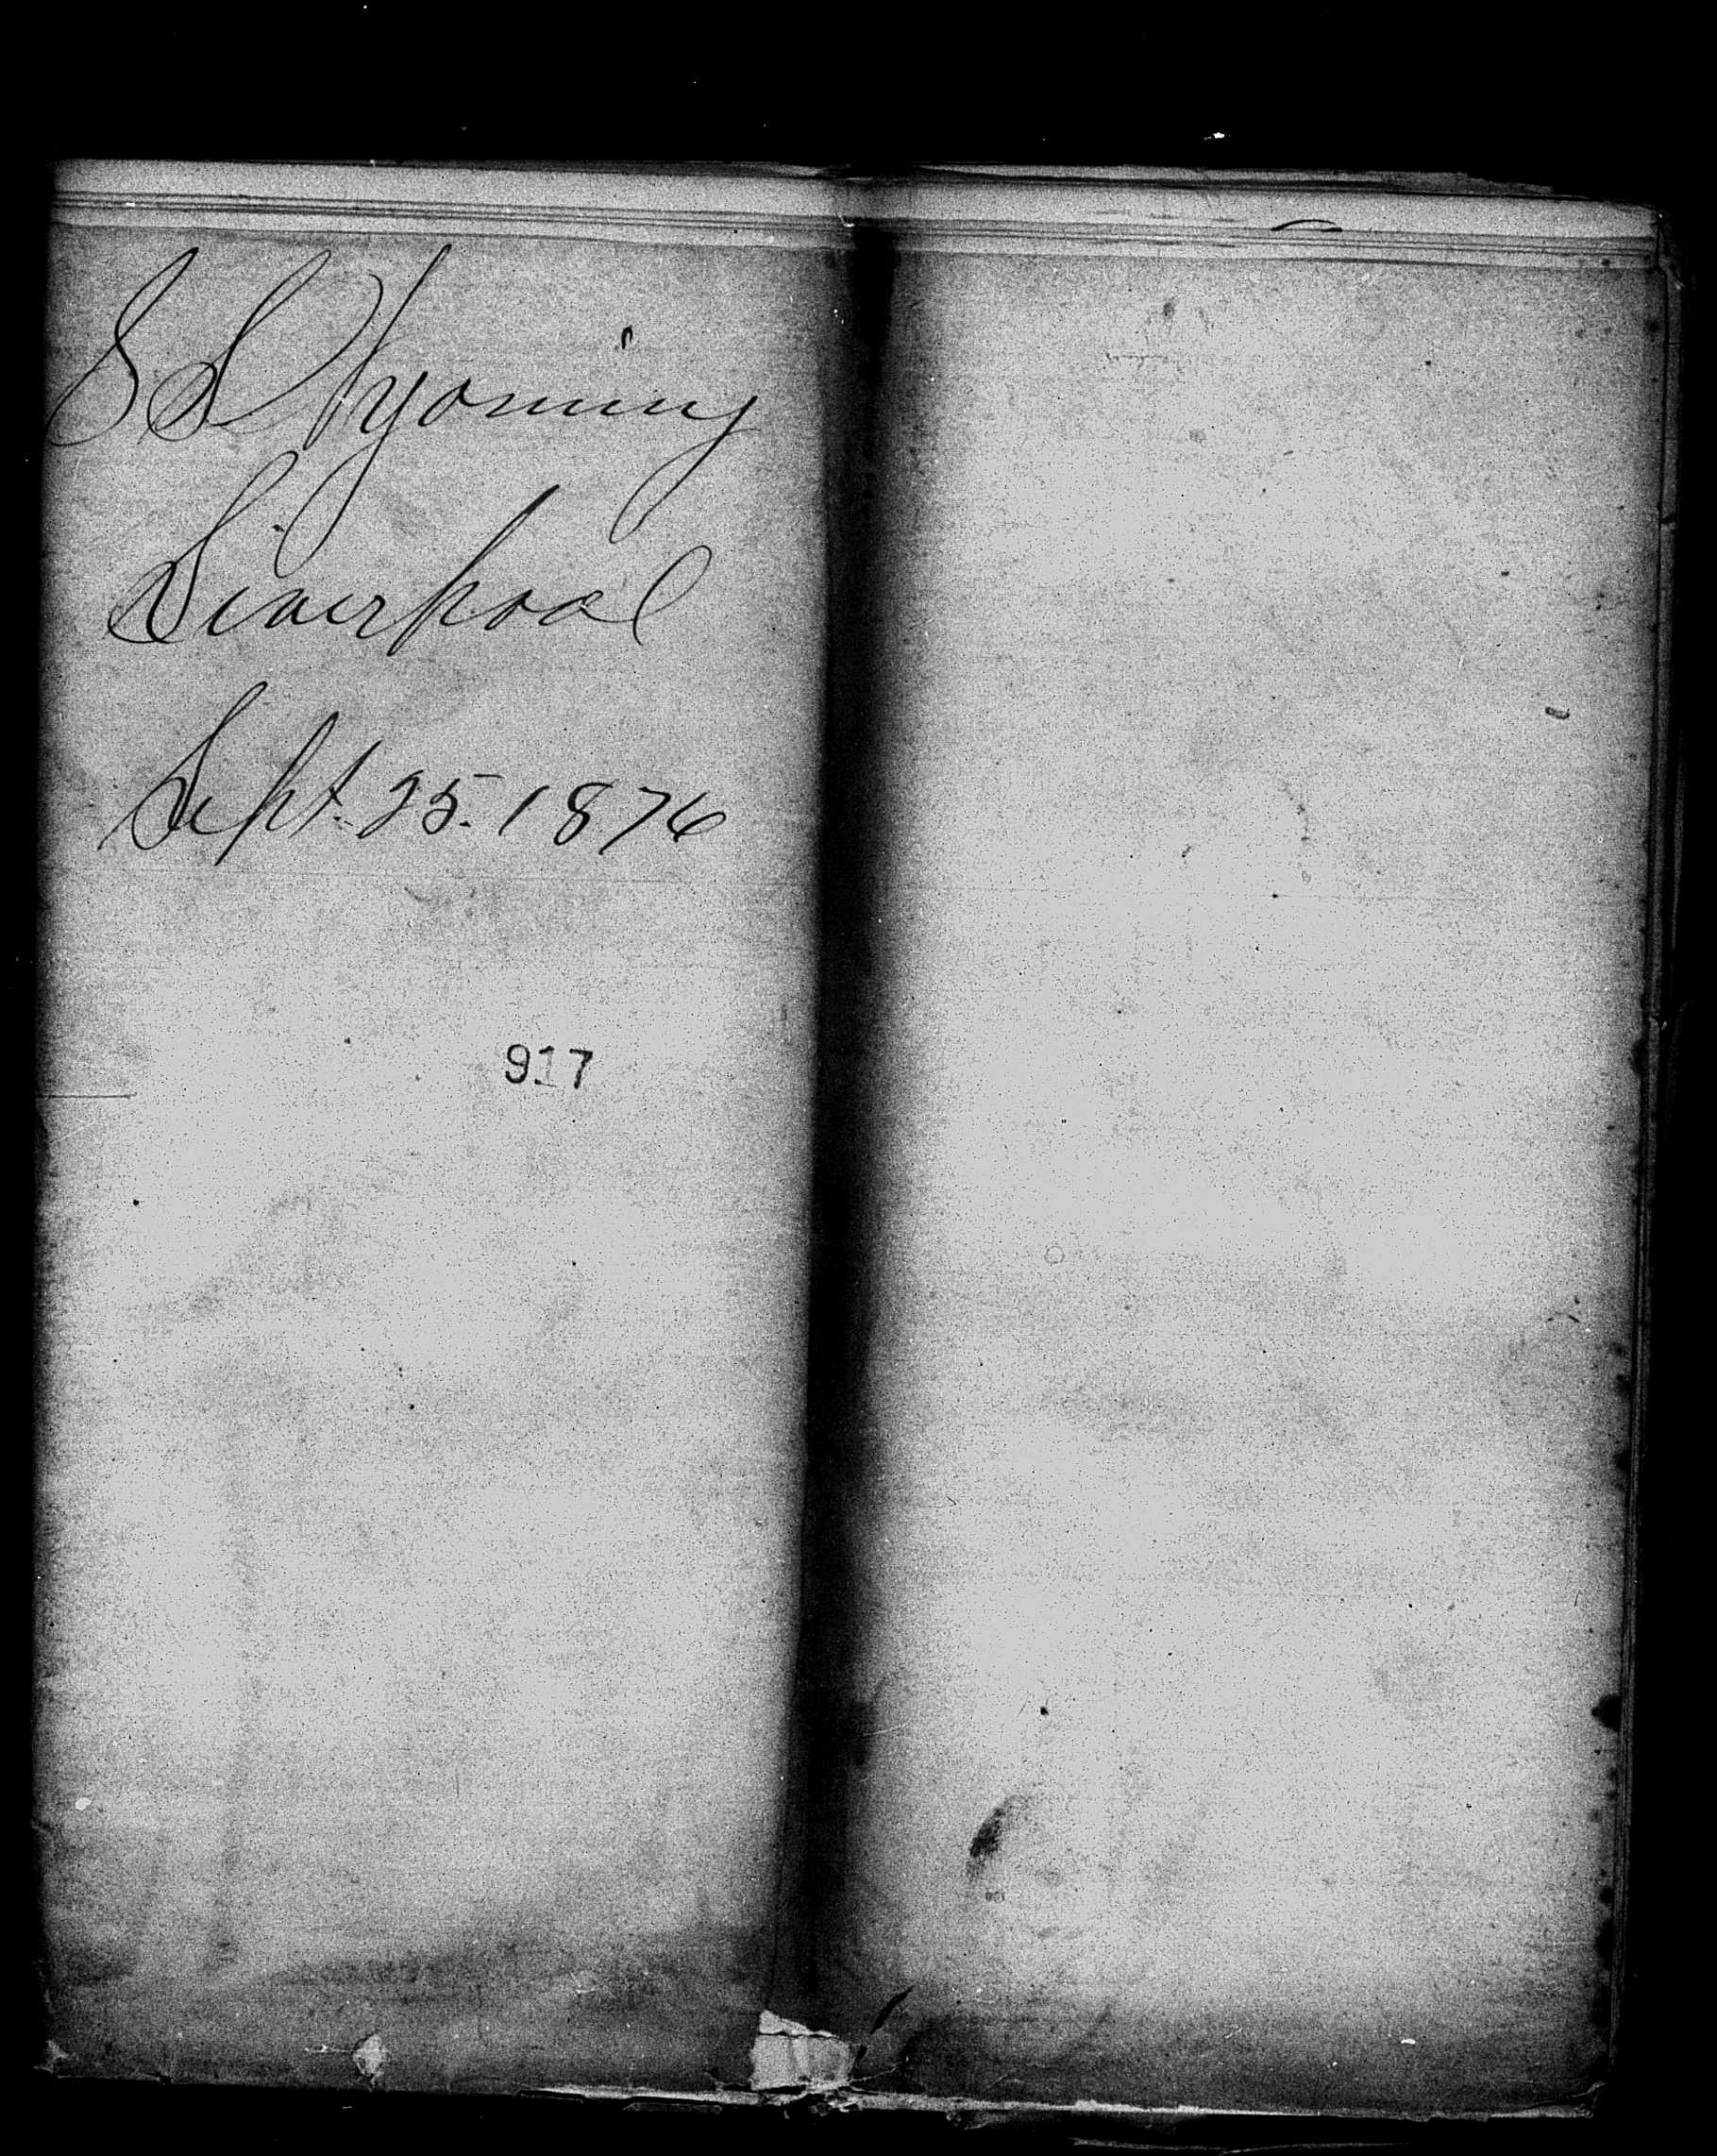 SS Wyoming
Liverpool
Sept. 25. 1876
917